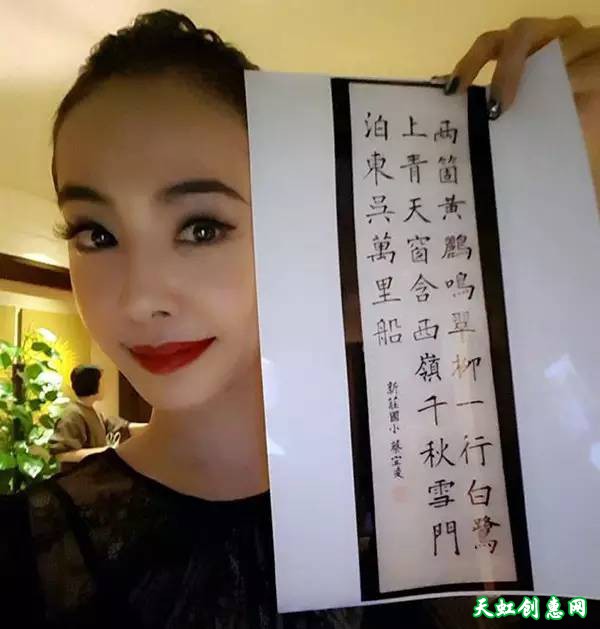 兩箇黃鸝鳴翠柳一行白鷺
上青天窗含西嶺千秋雪門
泊東吳萬里船
新莊國小 蔡宜凌
天虹创惠网